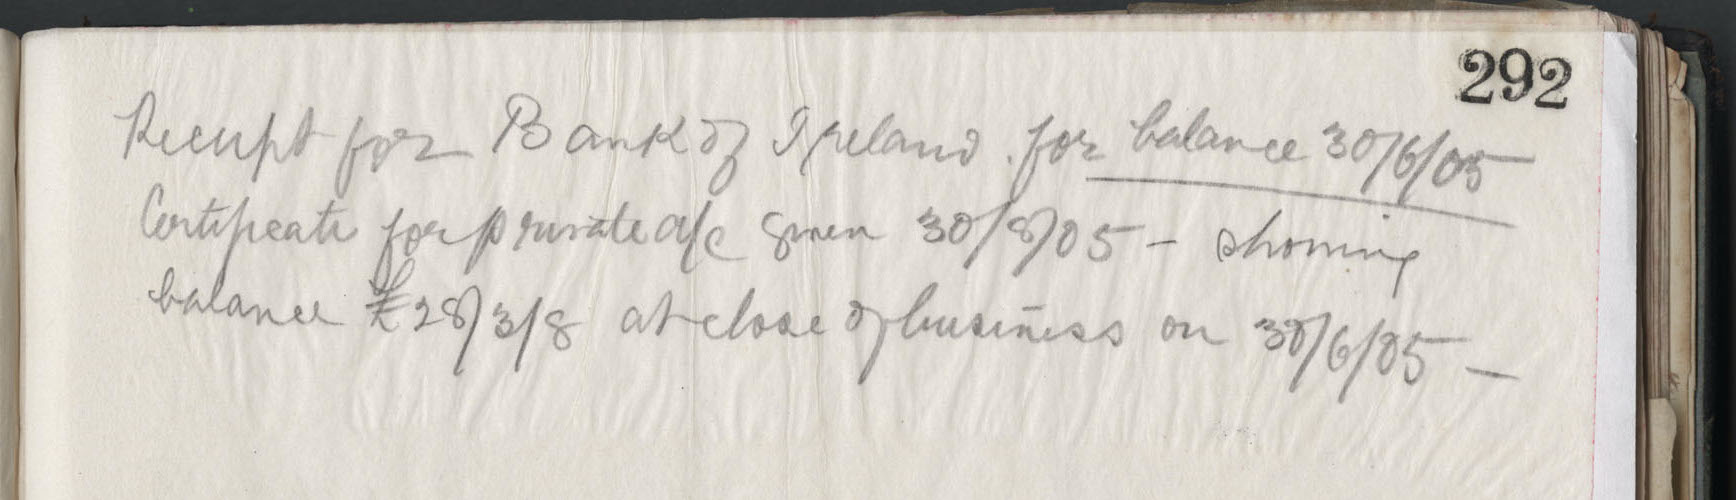 292
Receipt for Bank of Ireland for balance 30/6/05
Certificate for private a/c given 30/8/05 - showing
balance £28/3/8 at close of business on 30/6/05 -